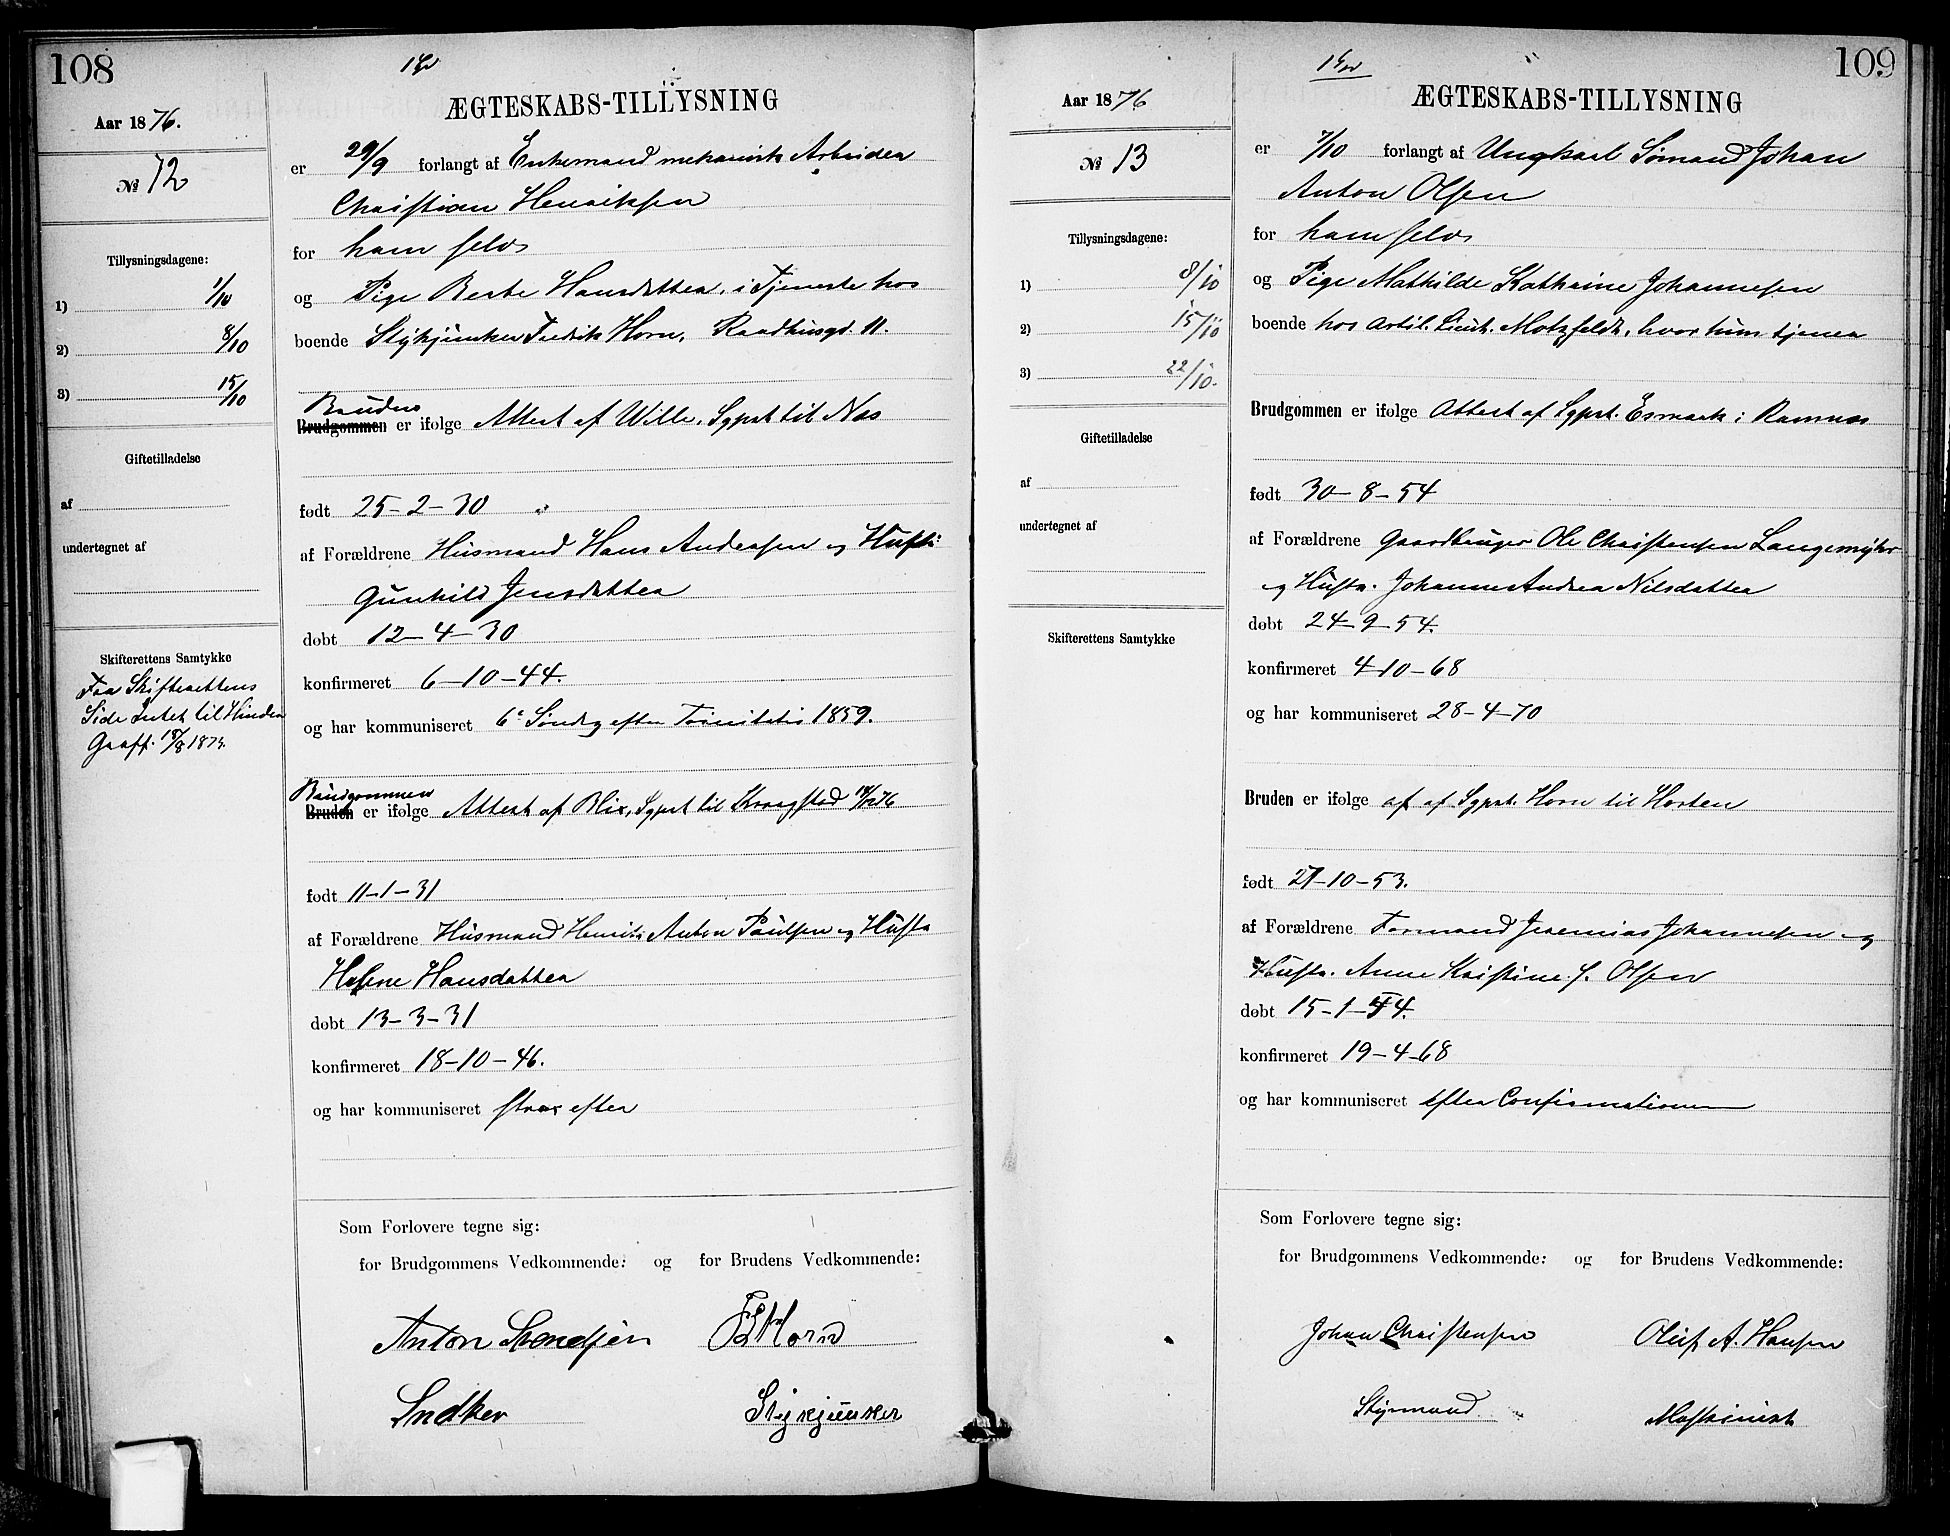 108
Aar 1876.
№ 12
Tillysningsdagene:
1) 1/10
2) 8/10
3) 15/10
Giftetilladelse
af
undertegnet af
Skifterettens Samtykke
Fra Skifterettens
Side Intet til Hinder
ÆGTESKABS-TILLYSNING
er 29/9 forlangt af Enkemand mekanisk Arbeider
Christian Henriksen
for ham selv
og Pige Berte Hansdatter, i Tjeneste hos
boende Stykjunker Fredrik Horn, Raadhusgd. 11.
Bruden
Brudgommen er ifølge Attest af Wille, Sgprst til Næs
født 25-2-30
af Forældrene Husmand Hans Andersen og Hustr:
Gunhild Jensdatter
døbt 12-4-30
konfirmeret 6-10-44.
og har kommuniseret 6te Søndag efter Trinitatis 1859.
Brudgommen
Bruden er ifølge Attest af Blix, Sgprst til Kraagstad
født 11-1-31
af Forældrene Husmand Henrik Anton Paulsen og Hustr
Helene Hansdatter
døbt 13-3-31
konfirmeret 18-10-46.
og har kommuniseret strax efter
Som Forlovere tegne sig:
for Brudgommens Vedkommende: og for Brudens Vedkommende:
Anton Svendsen F Horn
Snedker Stykjunker
109
Aar 1876
№ 13
Tillysningsdagene:
1) 8/10
2) 15/10
3) 22/10.
Giftetilladelse
af
undertegnet af
Skifterettens Samtykke
ÆGTESKABS-TILLYSNING
er 7/10 forlangt af Ungkarl Sømand Johan
Anton Olsen
for ham selv
og Pige Mathilde Kathrine Johannesen
boende hos Artil. Lieut. Motzfeldt, hvor hun tjener
Brudgommen er ifølge Attest af Sgprt. Esmark i Ramnes
født 30-8-54
af Forældrene Gaardbruger Ole Christensen Langemyhr
og Hustr. Johanne Andrea Nilsdatter
døbt 24-9-54.
konfirmeret 4-10-68
og har kommuniseret 28-4-70
Bruden er ifølge af af Sgprst. Horn til Horten
født 27-10-53.
af Forældrene Formand Jeremias Johannesen og
Hustr. Anne Kristine f. Olsen
døbt 15-1-54.
konfirmeret 19-4-68
og har kommuniseret efter Confirmationen
Som Forlovere tegne sig:
for Brudgommens Vedkommende: og for Brudens Vedkommende:
Johan Christensen Oluf A. Hansen
Styrmand Maskinist